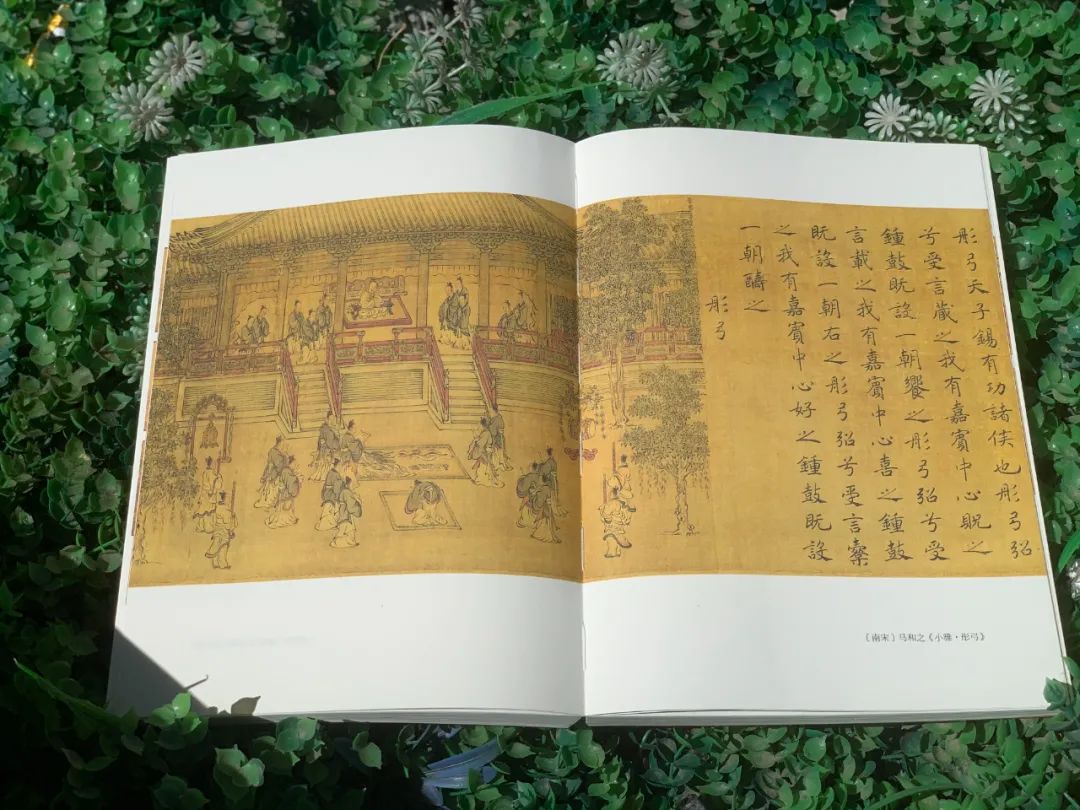 彤弓天子錫有功諸侯也彤弓弨
兮受言藏之我有嘉賓中心貺之
鍾鼓既設一朝饗之彤弓弨兮受
言載之我有嘉賓中心喜之鍾鼓
既設一朝右之彤弓弨兮受言櫜
之我有嘉賓中心好之鍾鼓既設
一朝醻之
彤弓
〔南宋〕马和之《小雅·彤弓》